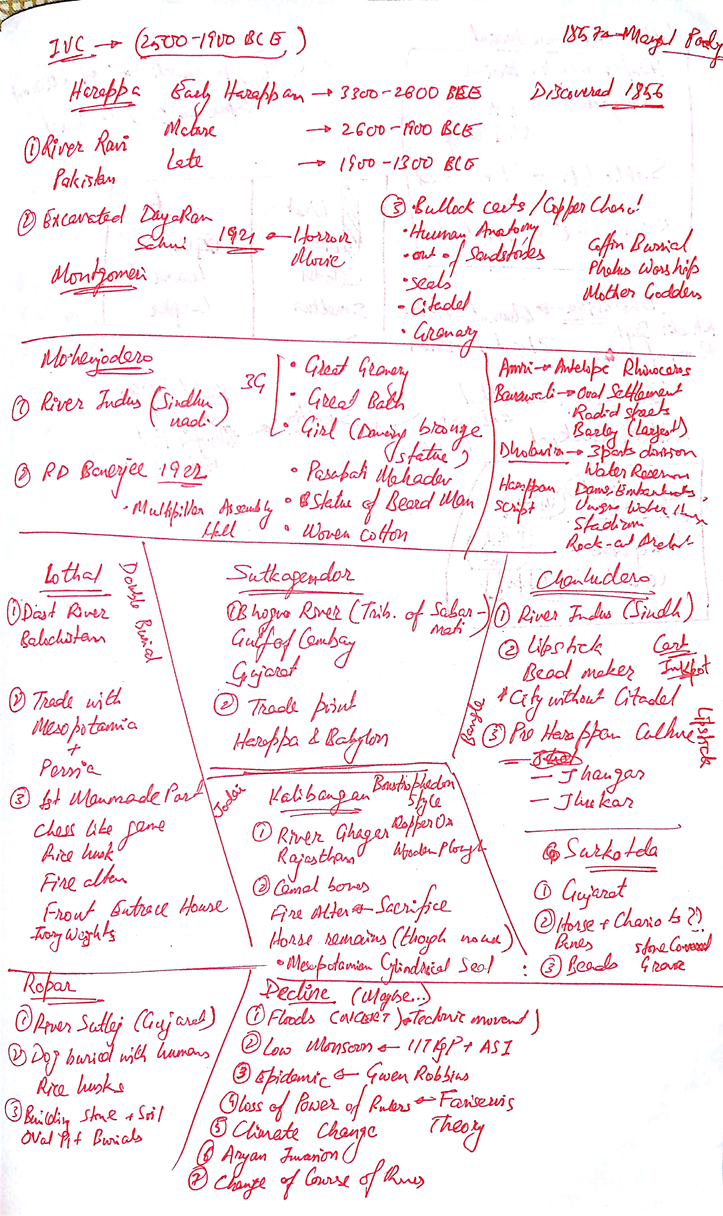 IVC → (2500-1900 BCE)
1857
Harappa Early Harappan → 3300-2600 BCE Discovered 1856
Mature → 2600-1900 BCE
Late → 1900-1300 BCE
① River Ravi
Pakistan
② Excavated DayaRam
Sahni 1921 Horror
Movie
③ • Bullock carts / Copper
• Human Anatomy
• out of Sandstones
• Seals
• Citadel
• Granary
Coffin Burrial
Phalus Worship
Mother Goddess
Mohenjodero
① River Indus (Sindhu
nadi)
② RD Banerjee 1922
• Multipillar Assembly
Hall
3G
• Great Granery
• Great Bath
• Girl (Dancing bronze
statue)
• Pasupati Mahadev
• Statue of Beard Man
• Woven Cotton
Amri → Antelope Rhinoceros
Banawali → Oval Settlement
Radial streets
Barley (Largest)
Dholavira → 3 parts division
Water Reservoir
Harappan
Script
Dams, Embankments,
Unique Water
Stadium
Rock-cut
Lothal
① Dast River
Baluchistan
② Trade with
Mesopotamia
+
Persia
③ 1st Manmade Port
Chess like game
Rice husk
Fire alter
Front Entrace House
Ivory Weights
Double Burial
Sutkagendor
① Bhogva River (Trib. of Sabar-
mati)
Gulf of Cambay
Gujarat
② Trade point
Harappa & Babylon
Chanhudero
① River Indus (Sindh)
② Lipstick Cart
Bead maker Inkpot
City without Citadel
③ Pre Harappan Culture
— Jhangar
— Jhukar
Lipstick
Bangle
Kalibangan Boustrophedon
Style
① River Ghagar Copper Ox
Rajasthan Wooden Plough
② Camel bones
Fire Alter Sacrifice
Horse remains (though no use)
• Mesopotamian Cylindrical Seal
Surkotda
① Gujarat
② Horse + Chariots ??
Stone Covered
③ Beads Grave
Ropar
① River Sutlej (Gujarat)
② Dog buried with humans
Rice husks
③ Building stone + Soil
Oval Pit Burials
Decline (Maybe...)
① Floods Tectonic movement)
② Low Monsoon ← IITKgP + ASI
③ Epidemic ← Gwen Robbins
④ Loss of Power of Rulers ← Fariservis
Theory
⑤ Climate Change
⑥ Aryan Invasion
⑦ Change of Course of Rivers